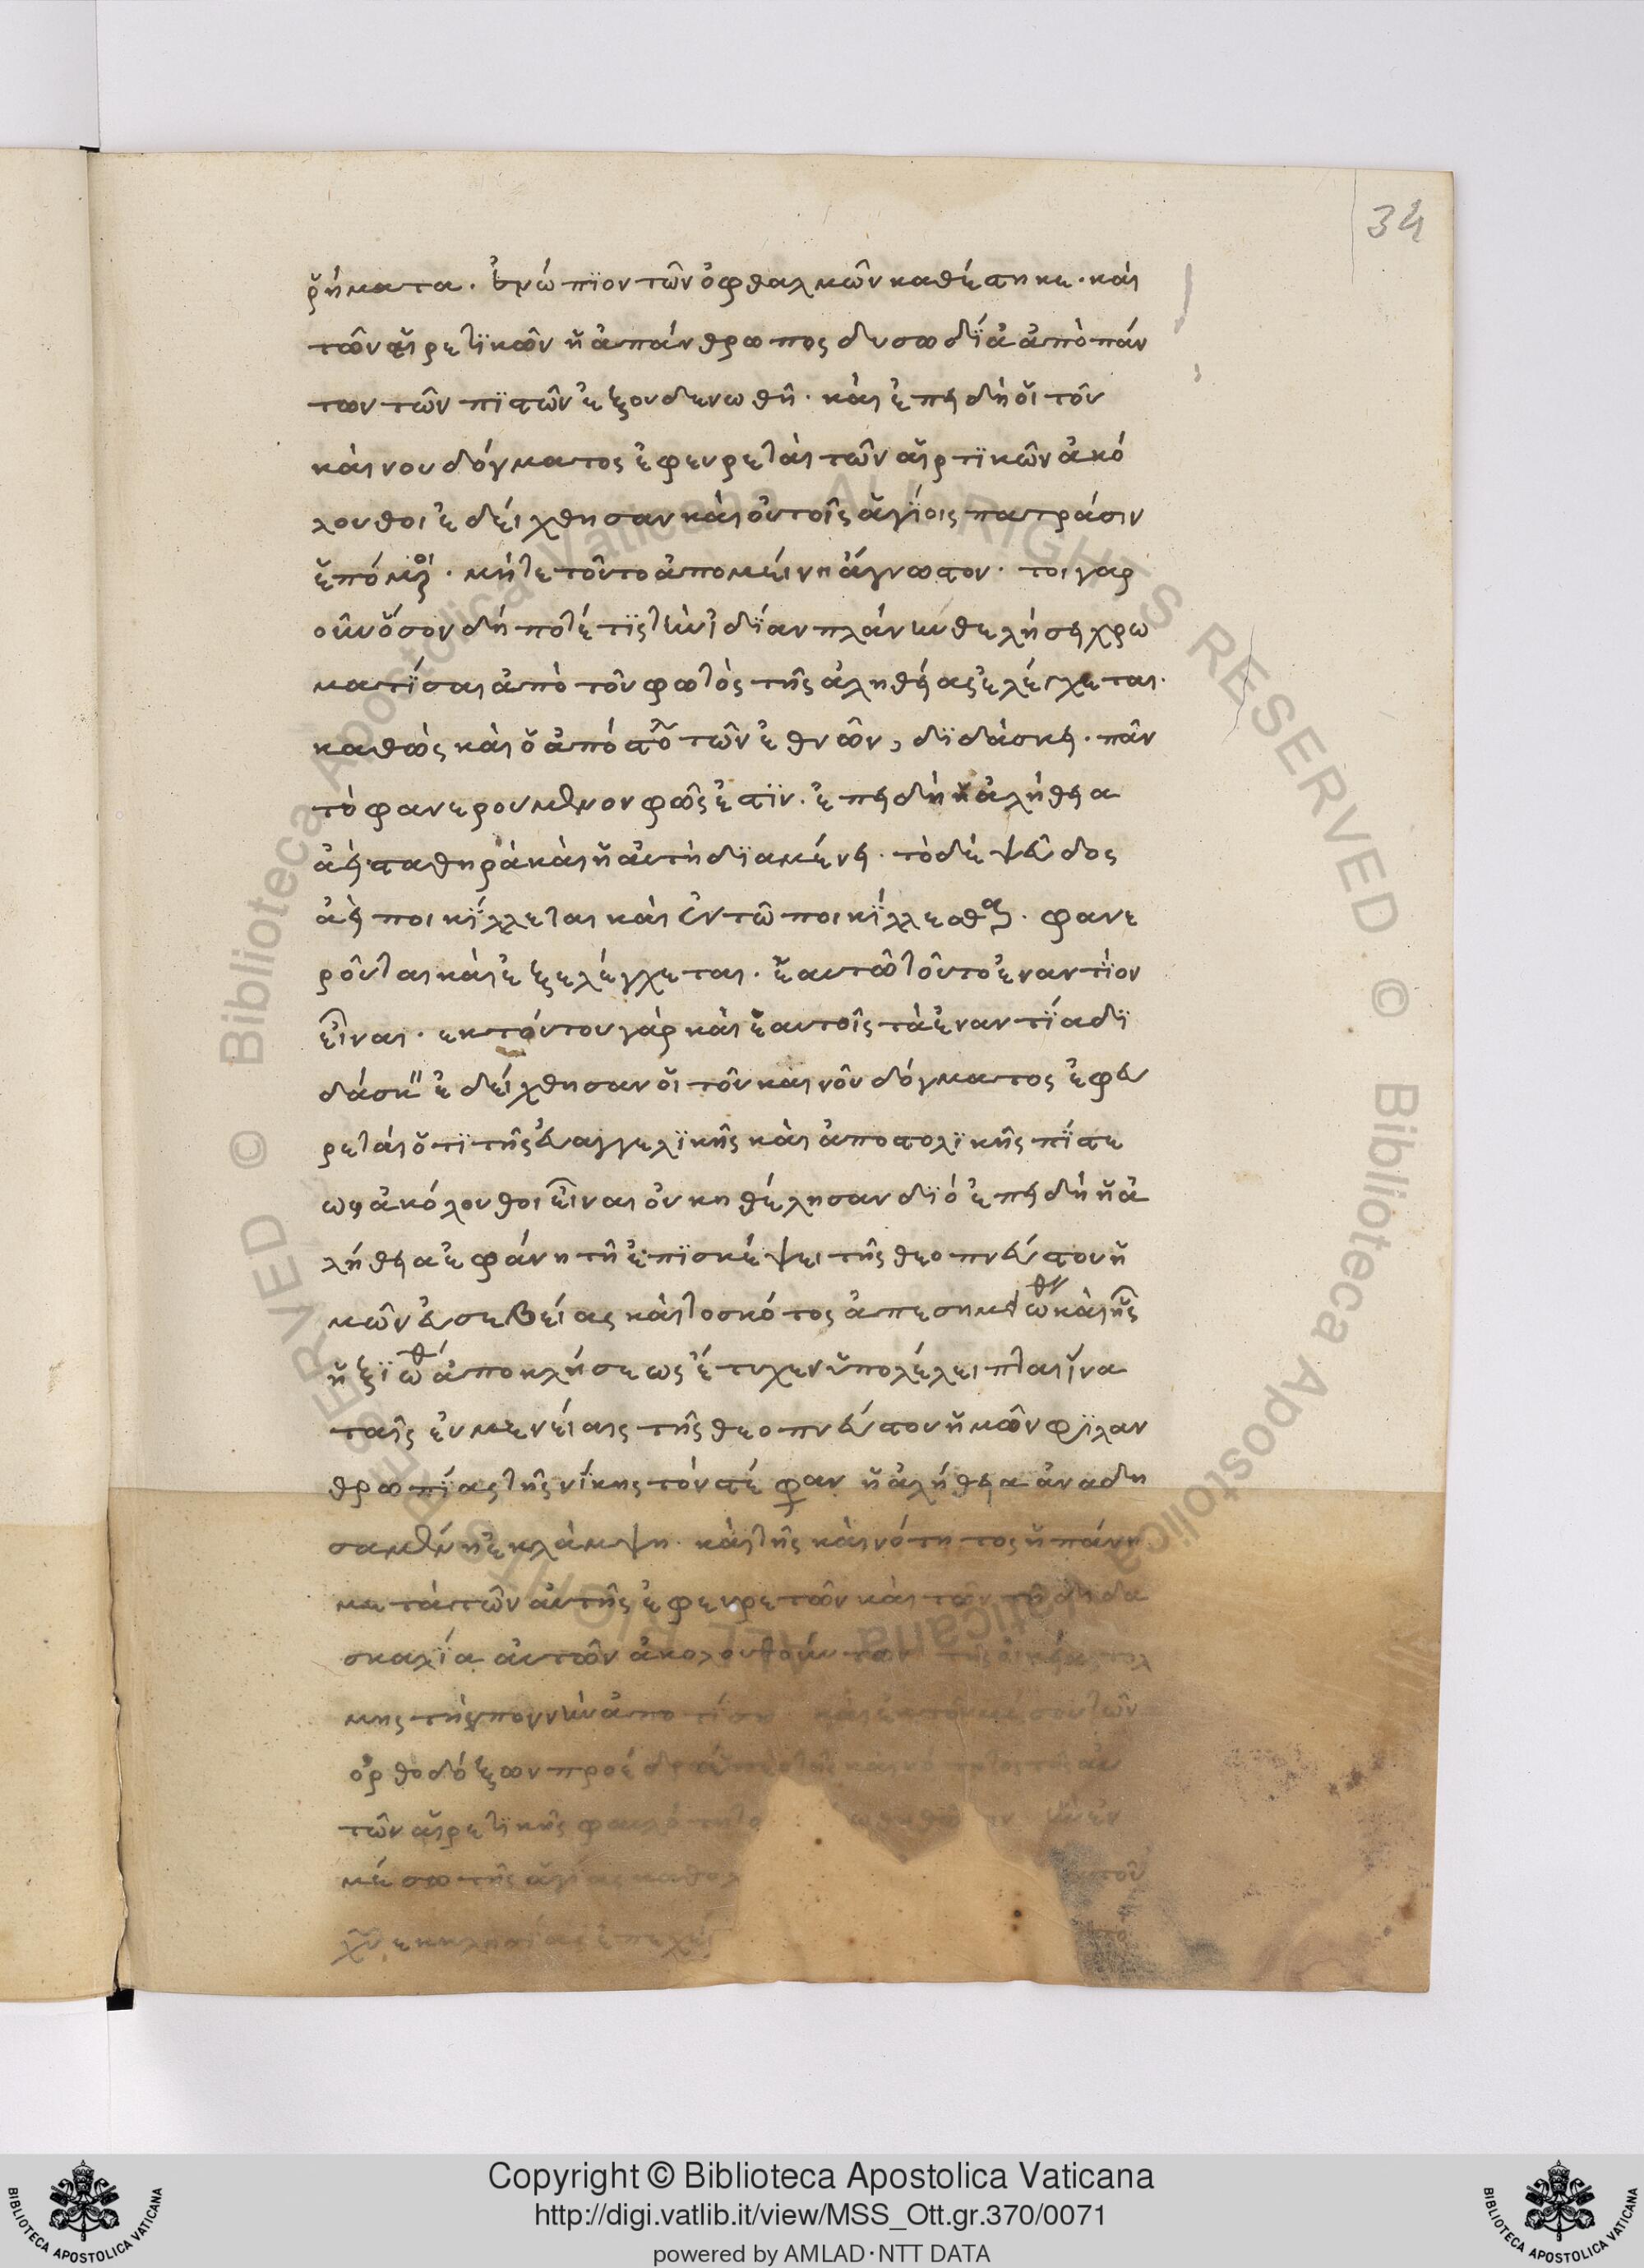 34
ῥήματα. ἐνώπϊον τῶν ὀφθαλμῶν καθέστηκε. καὶ
τῶν αἱρετϊκῶν ἡ ἀπάνθρωπος δυσωδΐα ἀπὸ πάν
των τῶν πϊστῶν ἐξουδενωθῆ. καὶ ἐπειδὴ οἱ τοῦ
καινου δόγματος ἐφευρεταὶ τῶν αἱρτϊκῶν ἀκό
λουθοι ἐδείχθησαν καὶ οὐ τοῖς ἁγΐοις πατράσιν
ἑπόμενοι. μήτε τοῦτο ἀπομείνη ἄγνωστον. τοιγαρ
οῦν ὅσον δήποτέ τϊς τὴν ἰδΐαν πλάνην θελήσει χρω
ματΐσαι ἀπὸ τοῦ φωτὸς τῆς ἀληθείας ἐλέγχεται.
καθὼς καὶ ὁ ἀπόστο τῶν ἐθνῶν, δϊδάσκει. πᾶν
τὸ φανερουμενον φῶς ἐστϊν. ἐπειδὴ ἡ ἀλήθεια
ἀεὶ σταθηρὰ καὶ ἡ ἀυτὴ δϊαμένει. τὸ δὲ ψεῦδος
ἀεὶ ποικΐλλεται καὶ ἐν τῶ ποικΐλλεσθαι. φανε
ροῦται καὶ ἐξελέγχεται. ἑαυτῶ τοῦτο ἐναντΐον
εἶναι. εκ τούτου γὰρ καὶ ἑαυτοῖς τὰ ἐναντΐα δϊ
δάσκ ἐδείχθησαν οἱ τοῦ καινοῦ δόγματος ἐφευ
ρεταὶ ὅτϊ τῆς ἐυαγγελϊκῆς καὶ ἀποστολϊκῆς πΐστε
ως ἀκόλουθοι εἶναι οὐκ ηθέλησαν δϊό ἐπειδὴ ἡ ἀ
λήθεια ἐφάνη τῆ ἐπϊσκέψει τῆς θεοπνεύστου ἡ
μῶν ἐυσεβείας καὶ το σκότος ἀπεσημειώθ καὶ ἧς
ἠξϊώθ ἀποκλήσεως ἔτυχεν ὑπολέλειπται ἵνα
ταῖς ἐυμενείαις τῆς θεοπνεύστου ἡμῶν φϊλαν
θρωπΐας τῆς νΐκης τὸν στέφαν ἡ ἀλήθεια ἀναδη
σαμένη ἐκλάμψη. καὶ τῆς καινότητος ἡ πάνη
μετὰ τῶν ἀυτῆς ἐφευρετῶν καὶ τῶν τῆ δϊδα
σκαλΐα ἀυτῶν ἀκολουθούντων τῆς οἰκείας τολ
μης τὴν ποινὴν ἀπο
ὀρθοδόξων προέδρ
τῶν αἱρετϊκῆς φαυλότητο
μέσω τῆς ἁγΐας καθολ υτοῦ
χυ εκκλησΐας ἐπεχεί
Copyright © Biblioteca Apostolica Vaticana
http://digi.vatlib.it/view/MSS_Ott.gr.370/0071
powered by AMLAD·NTT DATA
BIBLIOTECA APOSTOLICA VATICANA
BIBLIOTECA APOSTOLICA VATICANA
© Biblioteca Apostolica Vaticana ALL RIGHTS RESERVED
© Biblioteca Apostolica Vaticana ALL RIGHTS RESERVED